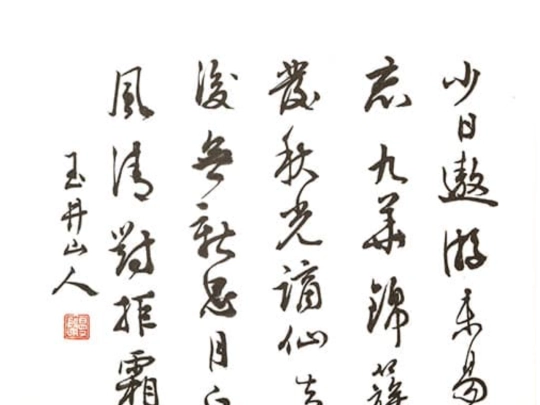 少日遨游未易
忘九華錦簇
發秋光謫仙去
後無新思月白
風清對拒霜
玉井山人